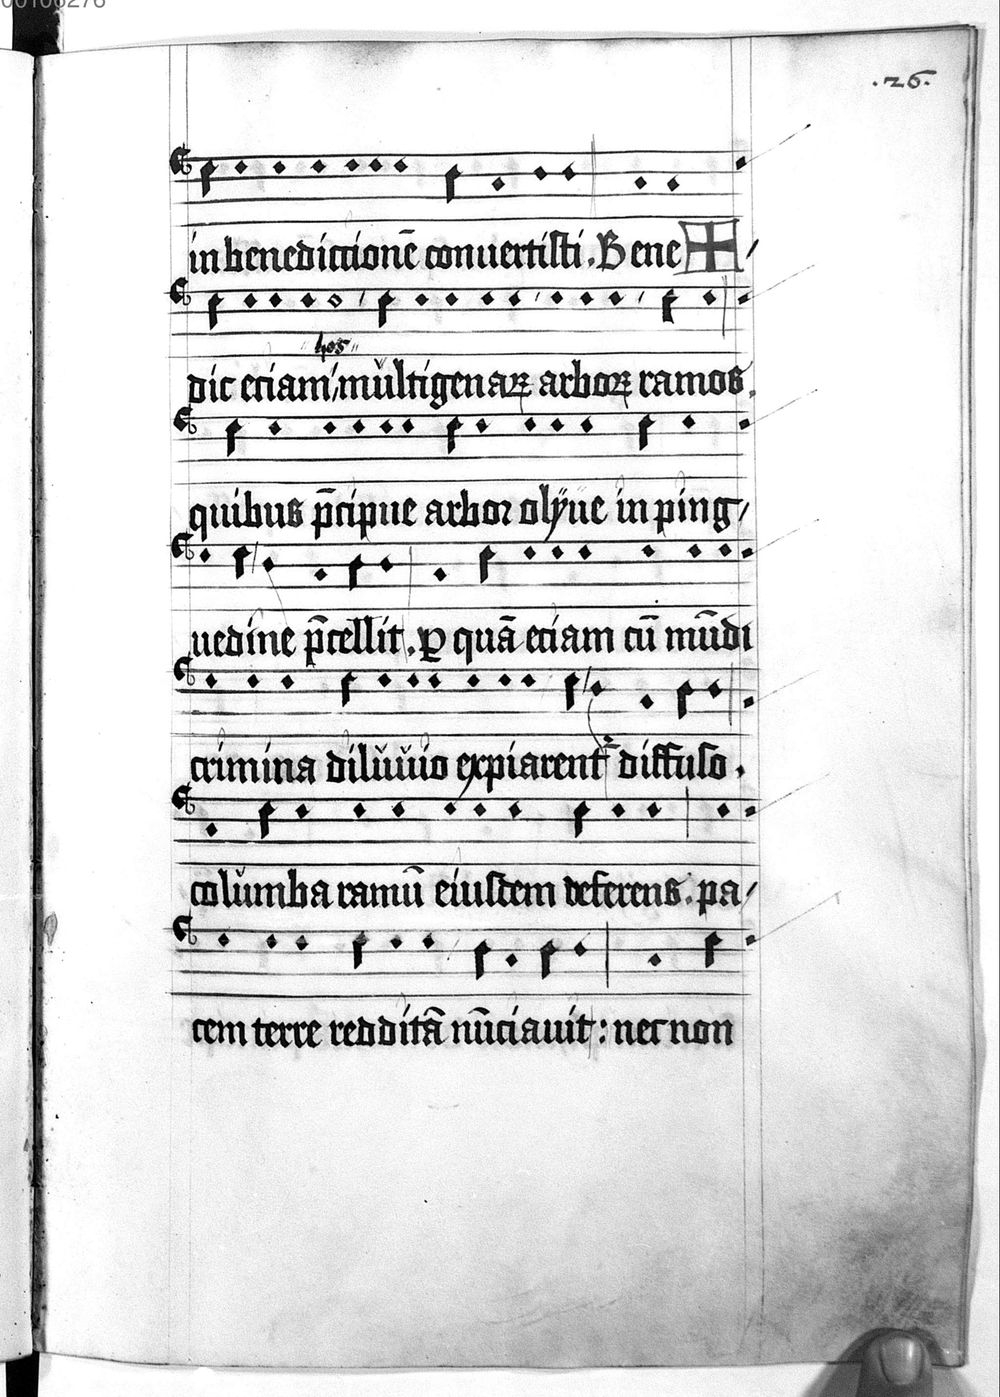 00106276
.26.
in benedictionē conuertisti. Bene
dic eciam multigenaꝝ arboꝝ ramos.
hos
quibus p̄cipue arbor olyue in ping
uedine p̄cellit. ꝑ quā eciam cū mūdi
crimina diluuio expiarent᷑ diffuso.
columba ramū eiusdem deferens. pa
cem terre redditā nūciauit: nec non